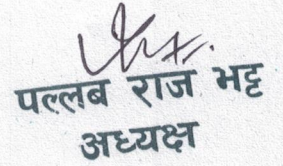 पल्लब राज भट्ट
अध्यक्ष